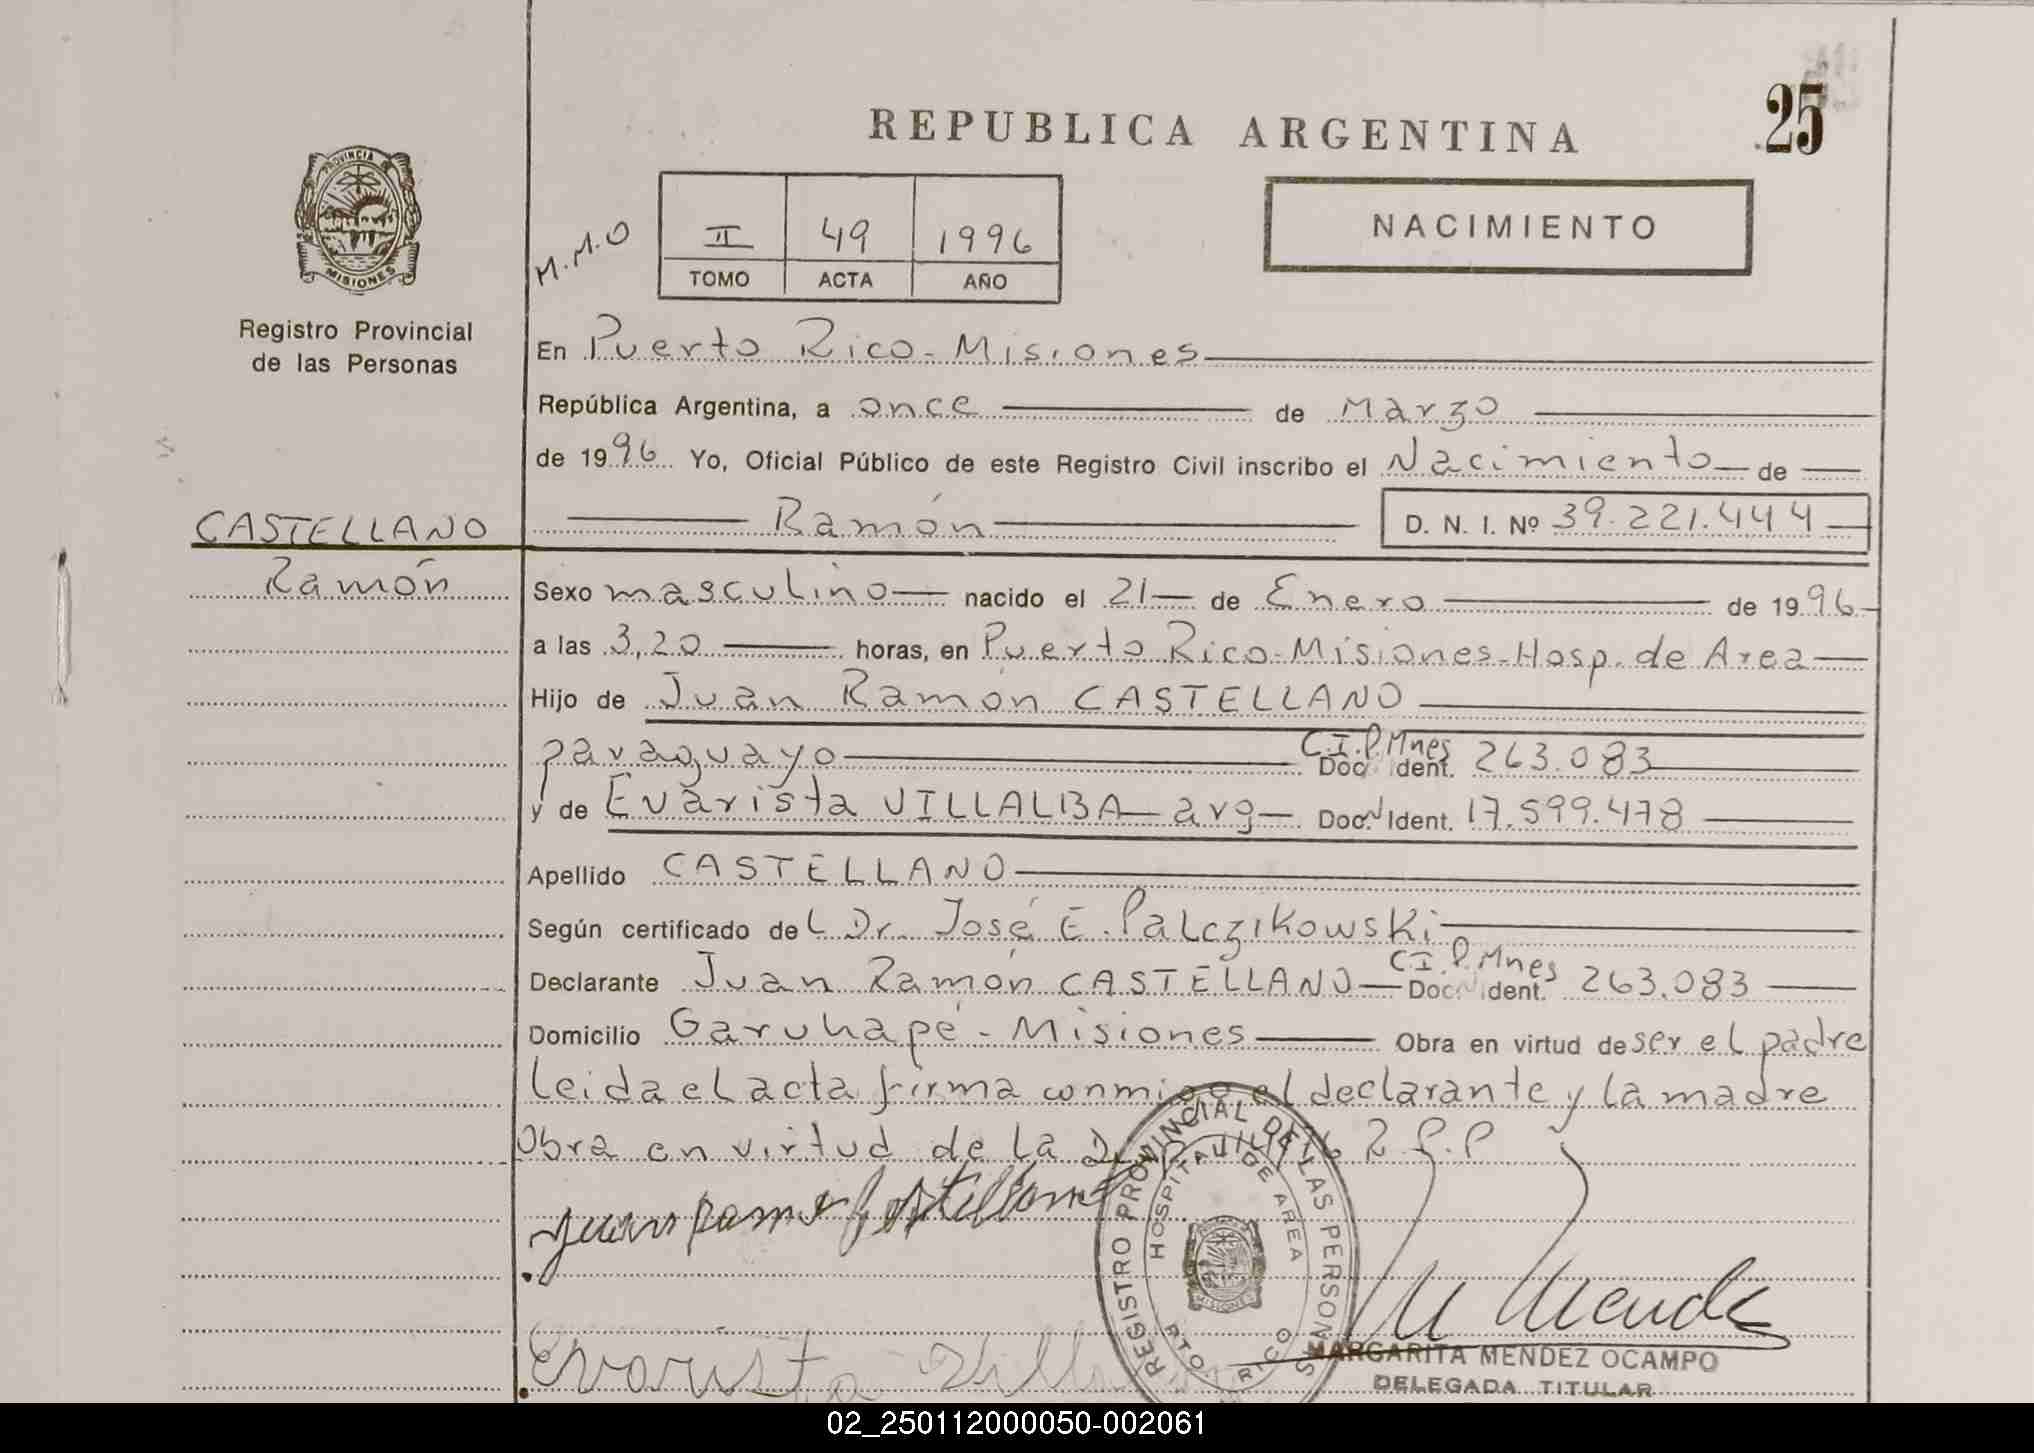 25
REPUBLICA ARGENTINA
PROVINCIA DE
MISIONES
M.M.O
II 49 1996
TOMO ACTA AÑO
NACIMIENTO
Registro Provincial
de las Personas
En Puerto Rico - Misiones
República Argentina, a once de Marzo
de 1996 Yo, Oficial Público de este Registro Civil inscribo el Nacimiento de
Ramón D. N. I. Nº 39.221.444
CASTELLANO
Ramón
Sexo masculino nacido el 21 de Enero de 1996
a las 3,20 horas, en Puerto Rico-Misiones-Hosp. de Area
Hijo de Juan Ramón CASTELLANO
paraguayo C.I.P. Mnes Doc. Ident. 263.083
y de Evarista VILLALBA arg Doc. Ident. 17.599.478
Apellido CASTELLANO
Según certificado del Dr. José E. Palczikowski
Declarante Juan Ramón CASTELLANO C.I.P. Mnes Doc. Ident. 263.083
Domicilio Garuhapé - Misiones Obra en virtud de ser el padre
Leida el acta firma conmigo el declarante y la madre
Obra en virtud de la R.P.P
Juan Ramon Castellano
REGISTRO PROVINCIAL DE LAS PERSONAS
HOSPITAL DE AREA
PTO. RICO
MISIONES
M Mendez
Evarista Villalba
MARGARITA MENDEZ OCAMPO
DELEGADA TITULAR
02_250112000050-002061